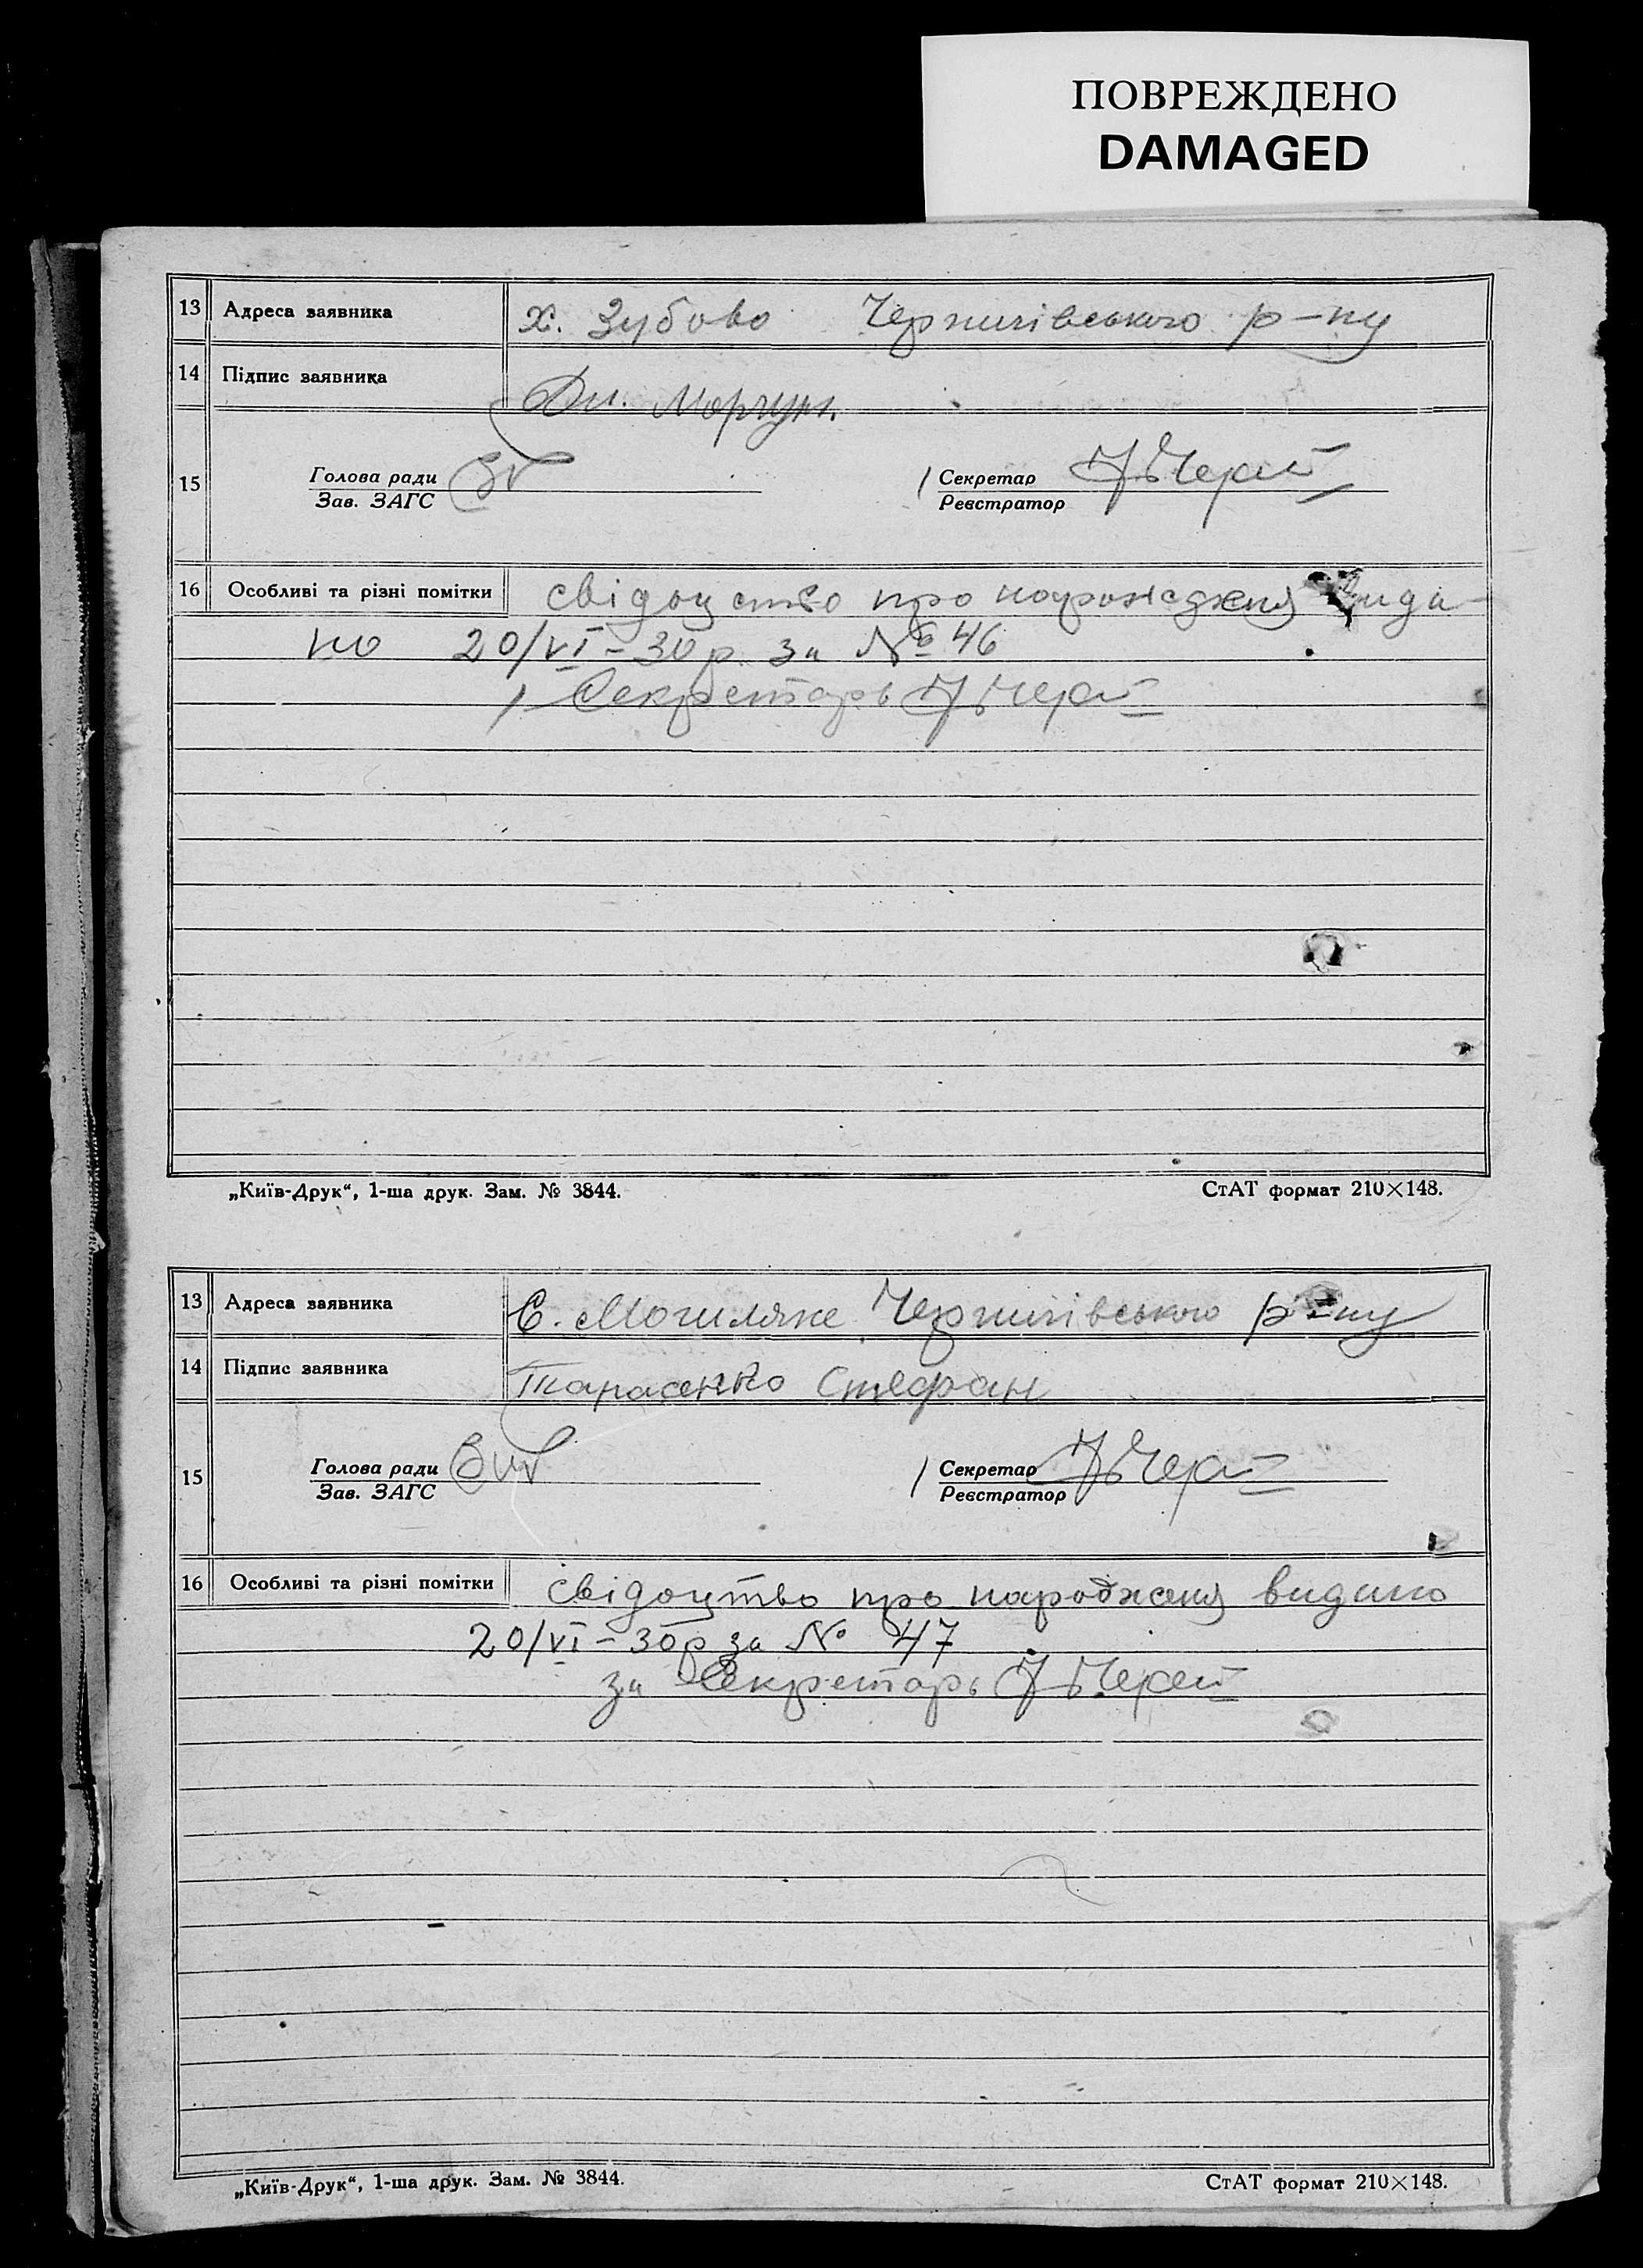 ПОВРЕЖДЕНО
DAMAGED
13 Адреса заявника х. Зубово Чернигівського р-ну
14 Підпис заявника Дм. Моргун.
15 Голова ради
Зав. ЗАГС
Секретар
Реєстратор
16 Особливі та різні помітки свідоцтво про народження вида-
но 20/VI-30 р. за № 46
Секретарь
„Київ-Друк“, 1-ша друк. Зам. № 3844. СтАТ формат 210×148.
13 Адреса заявника С. Могиляне Чернигівського р-ну
14 Підпис заявника Тарасенко Стефан
15 Голова ради
Зав. ЗАГС
Секретар
Реєстратор
16 Особливі та різні помітки свідоцтво про народженя видано
20/VI-30р за № 47
за Секретарь
„Київ-Друк“, 1-ша друк. Зам. № 3844. СтАТ формат 210×148.